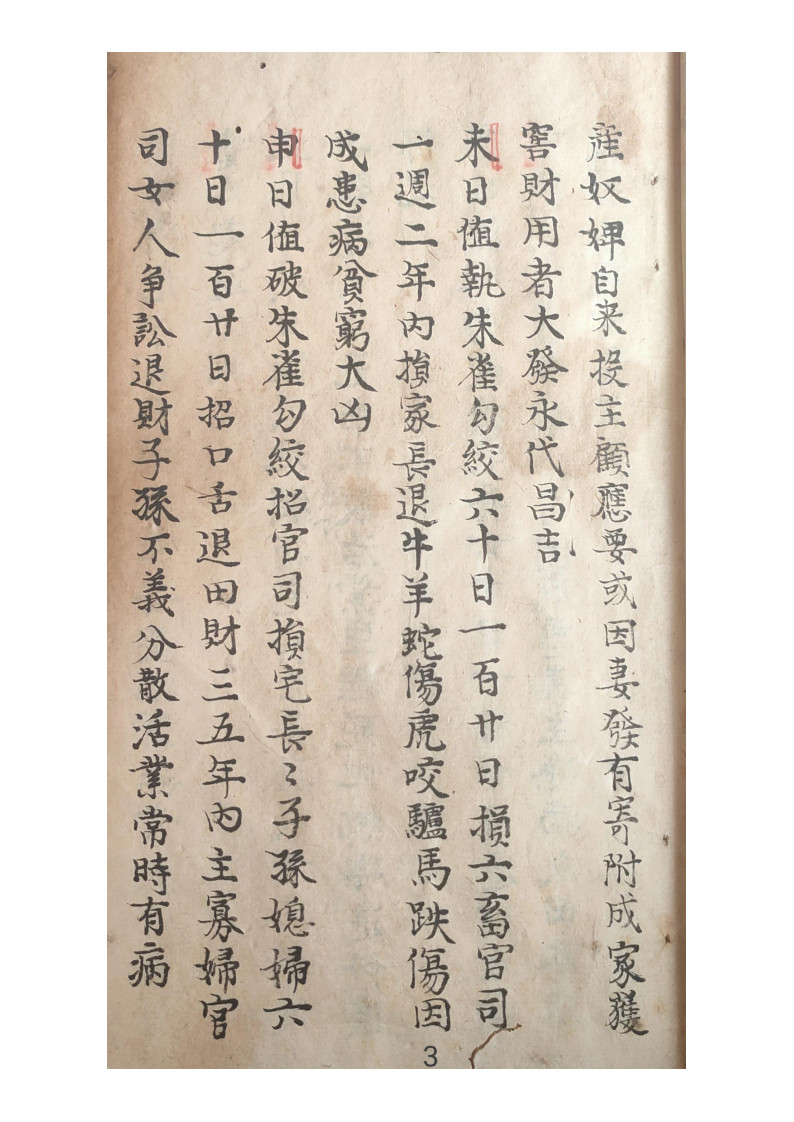 産奴婢自来投主顧應要或因妻發有寄附成家獲
窖財用者大發永代昌吉
未日值執朱雀勾絞六十日一百廿日損六畜官司
一週二年內損家長退牛羊蛇傷虎咬驢馬跌傷因
成患病貧窮大凶
申日值破朱雀勾絞招官司損宅長〻子孫媳婦六
十日一百廿日招口舌退田財三五年內主寡婦官
司女人争訟退財子孫不義分散活業常時有病
3